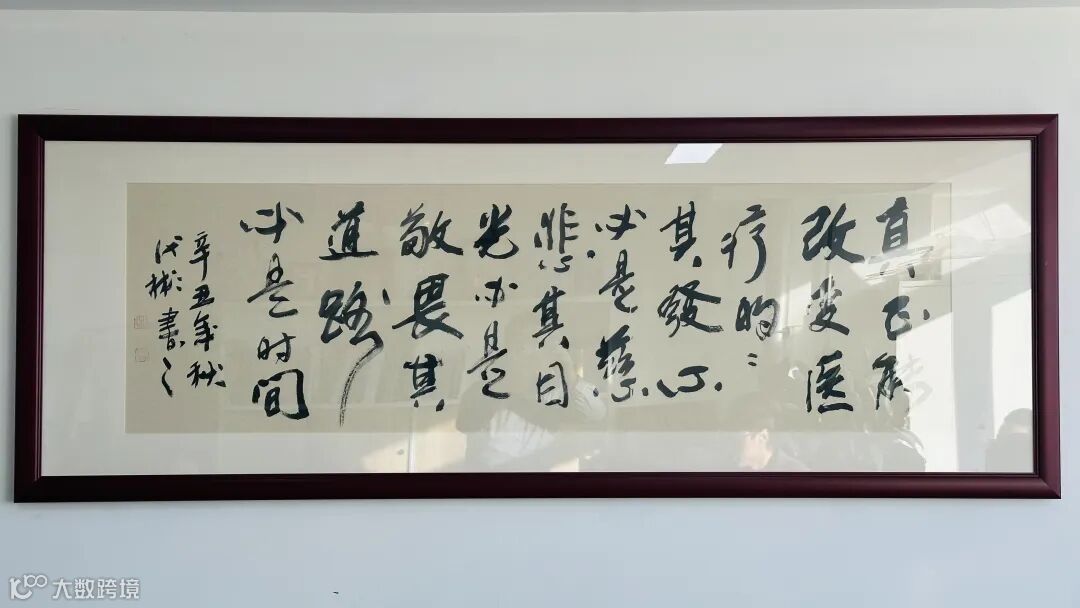 真正能
改变医
疗的
其發心
必是慈
悲其目
光必是
敬畏其
道路
必是时间
辛丑年秋
彬書之
大数跨境